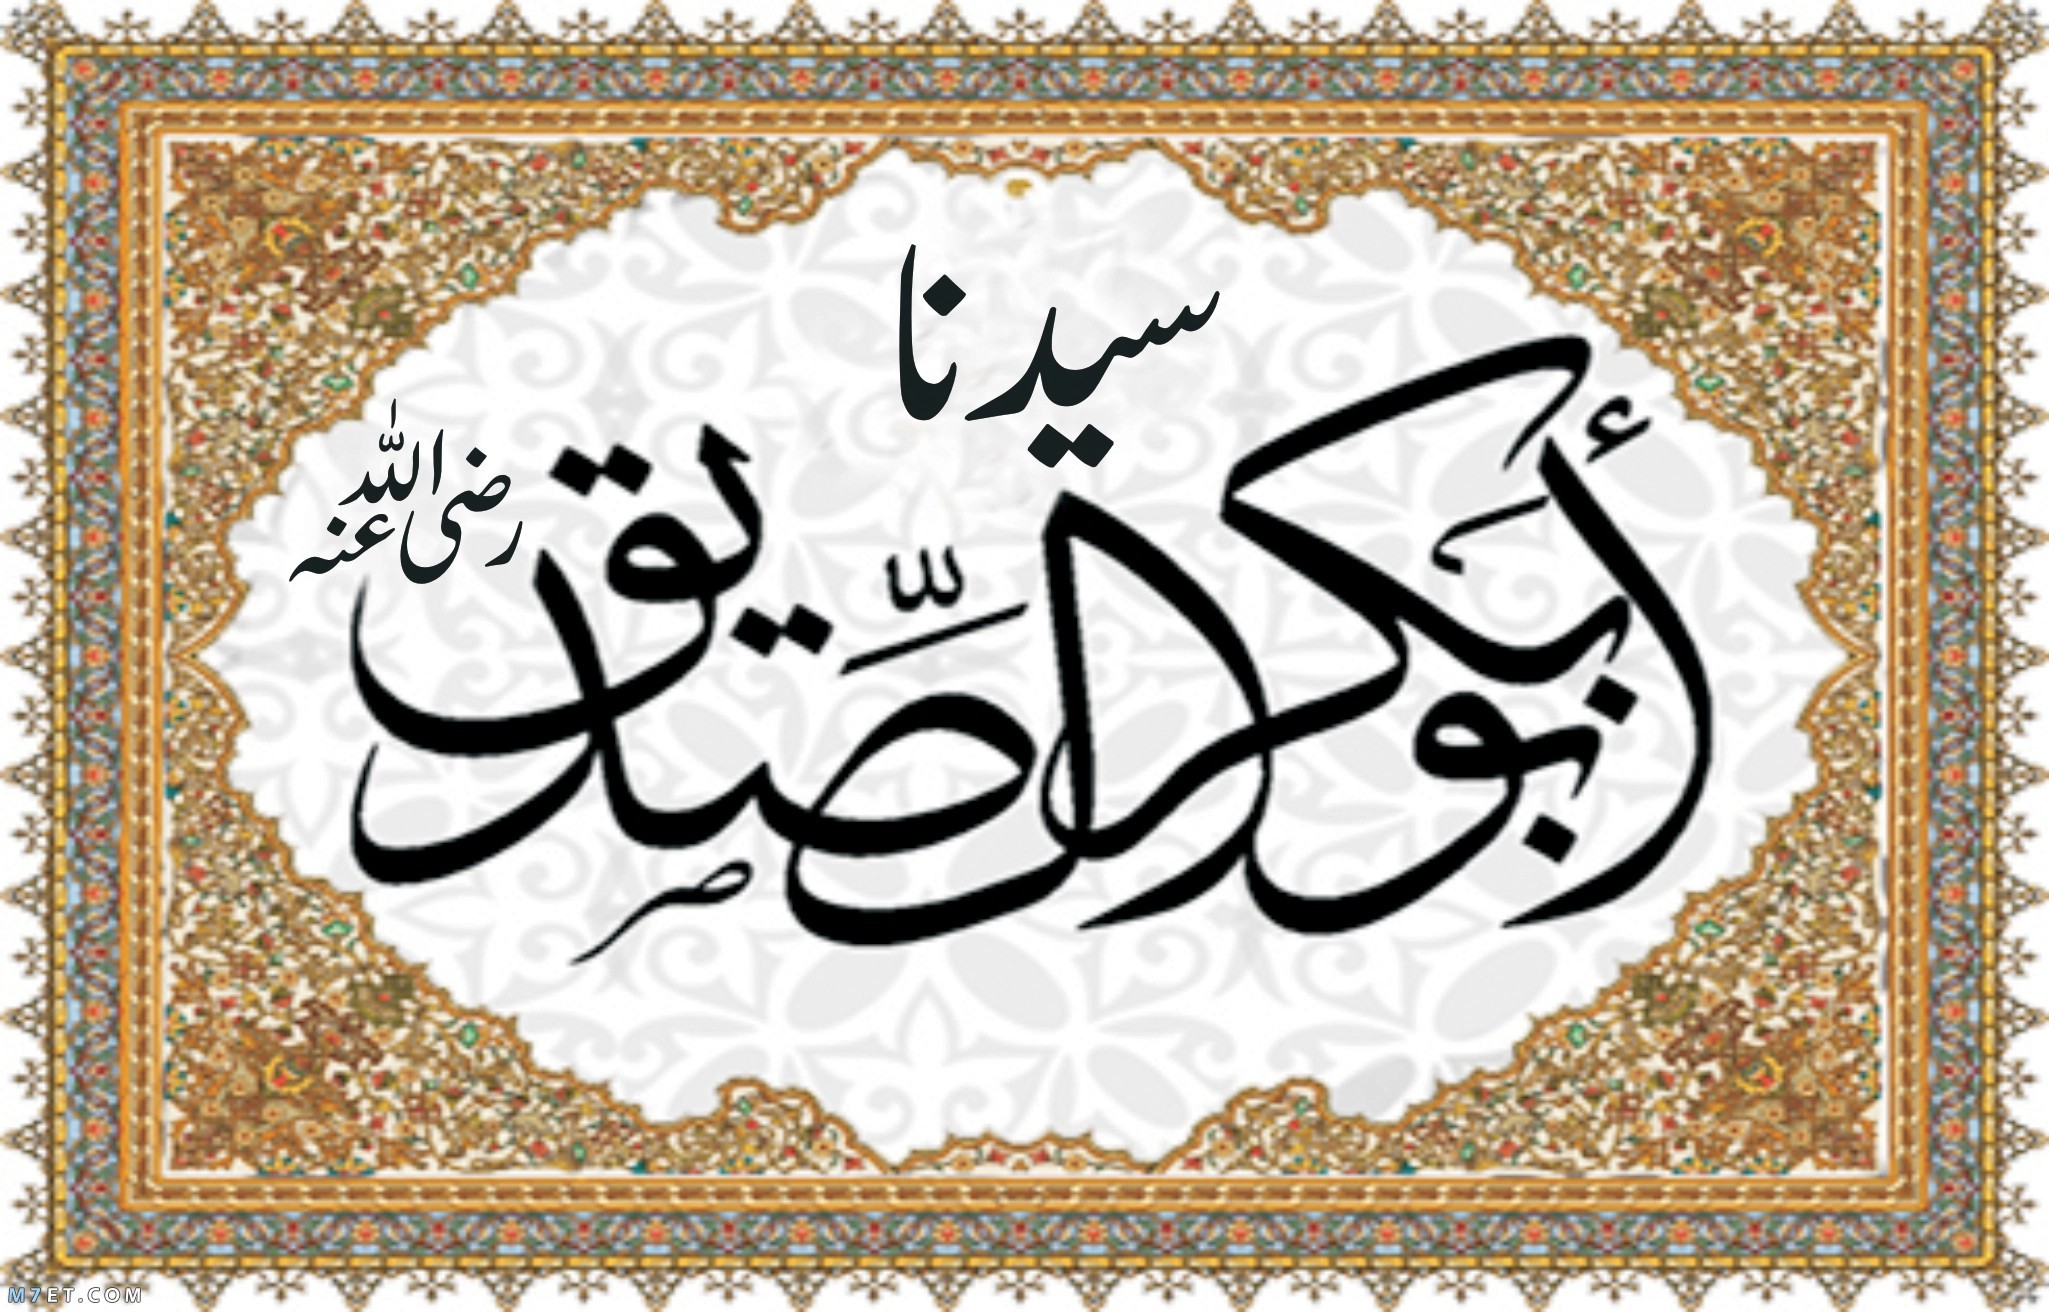 سيدنا
أبو بكر الصّديق
رضى الله عنه
M7ET.COM